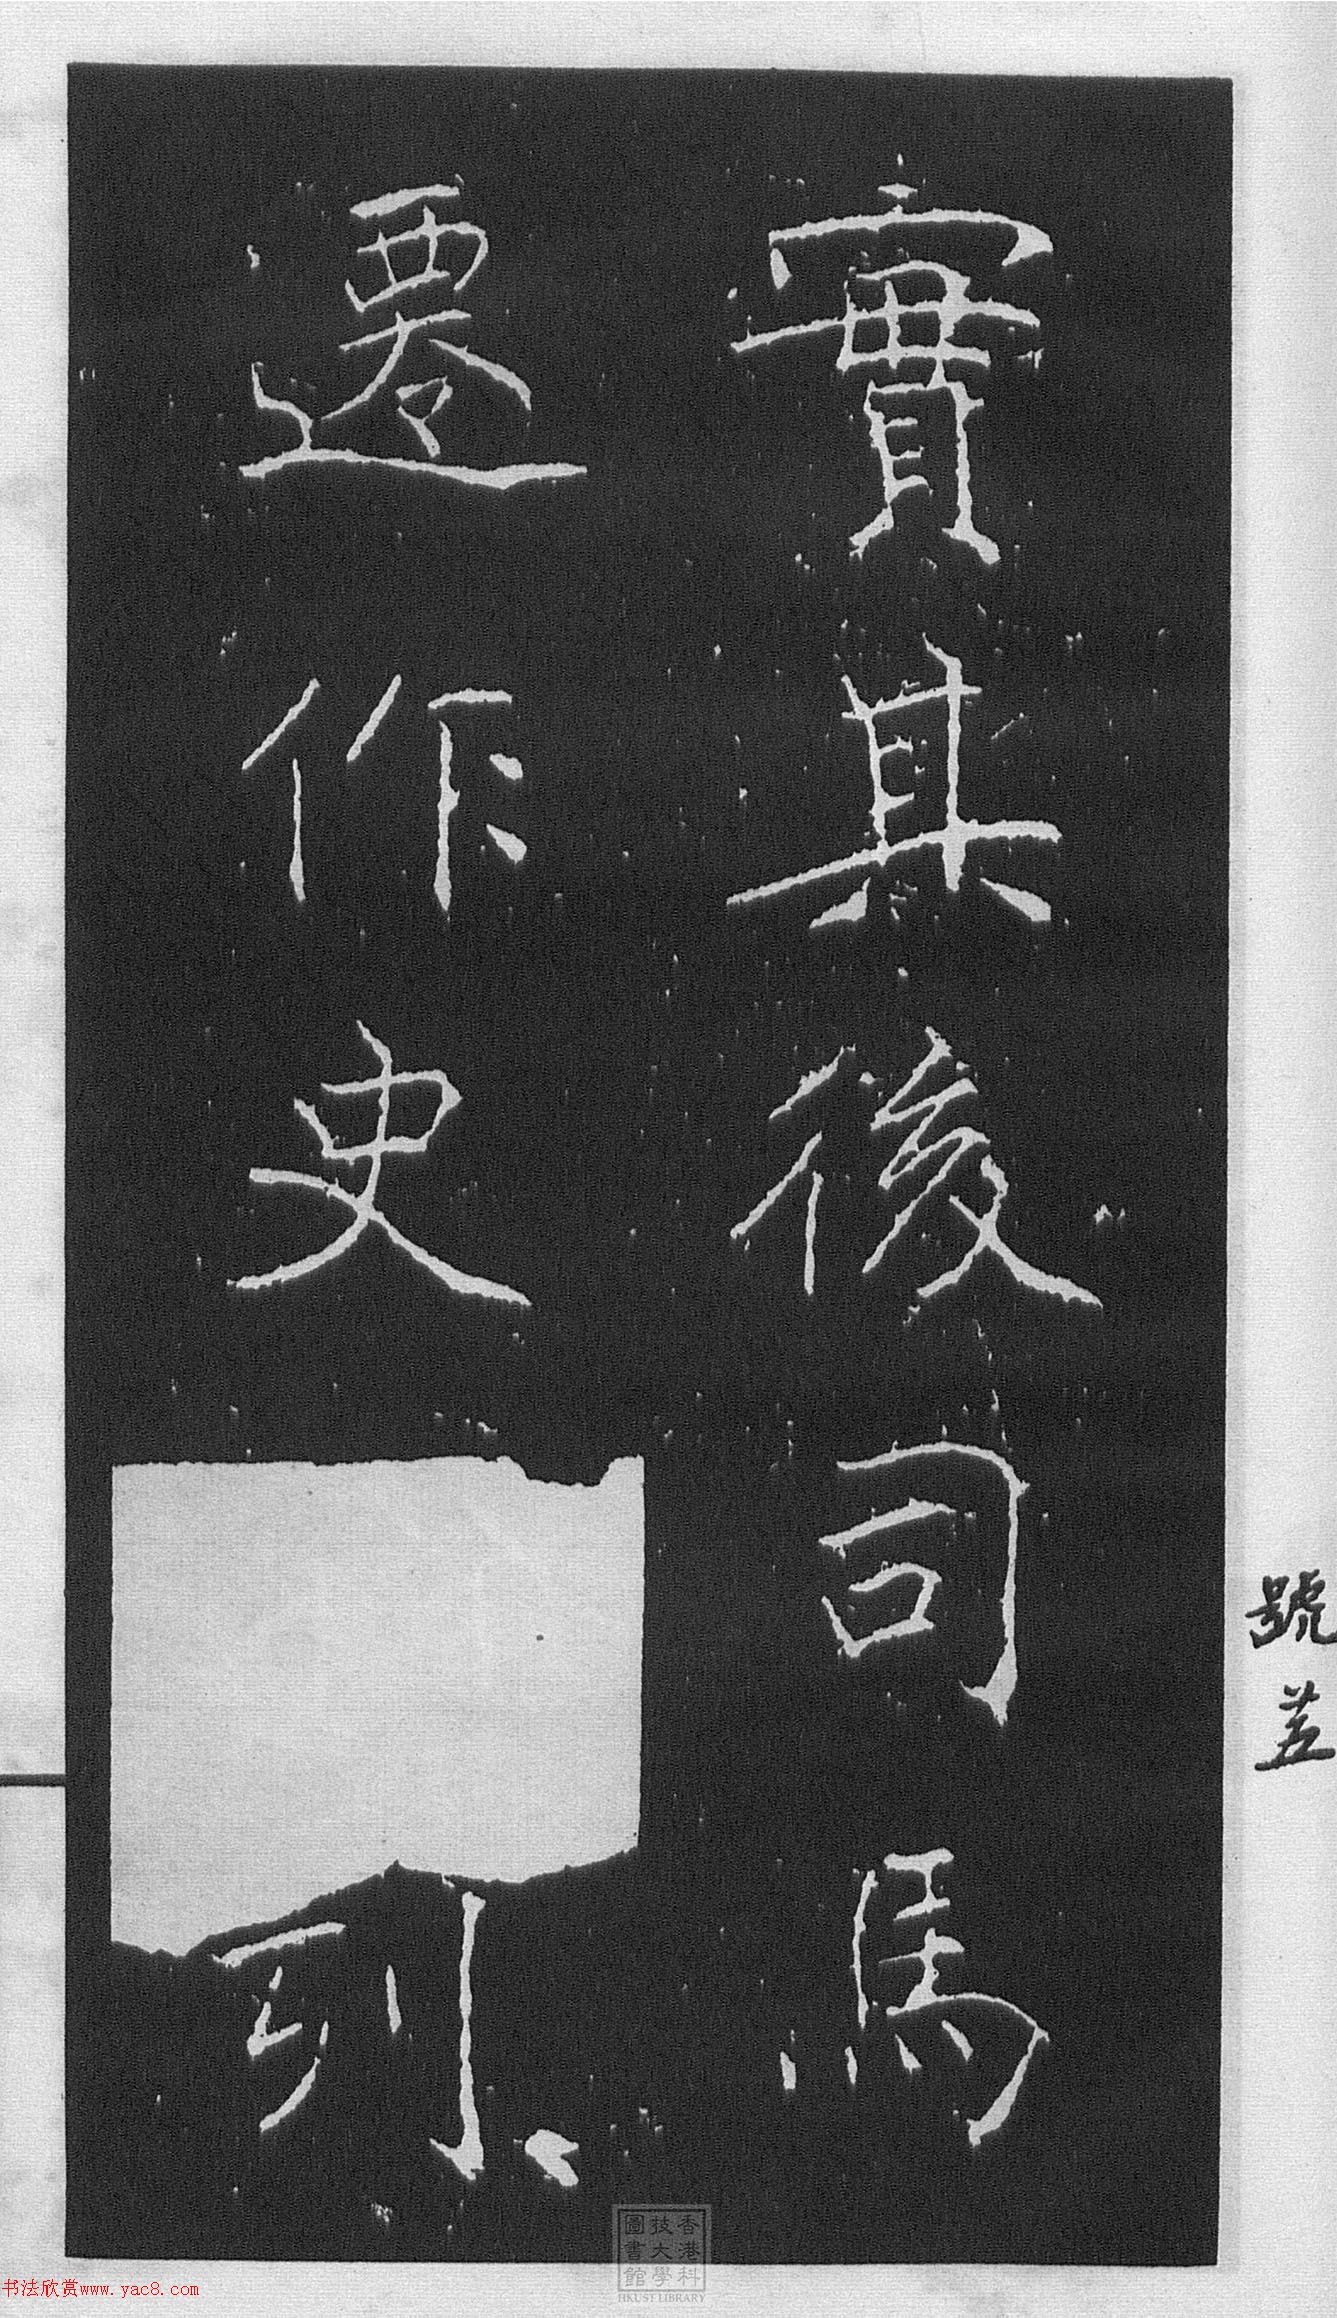 實其後司馬
遷作史
列
號
书法欣赏www.yac8.com
香港科
技大學
圖書館
HKUST LIBRARY